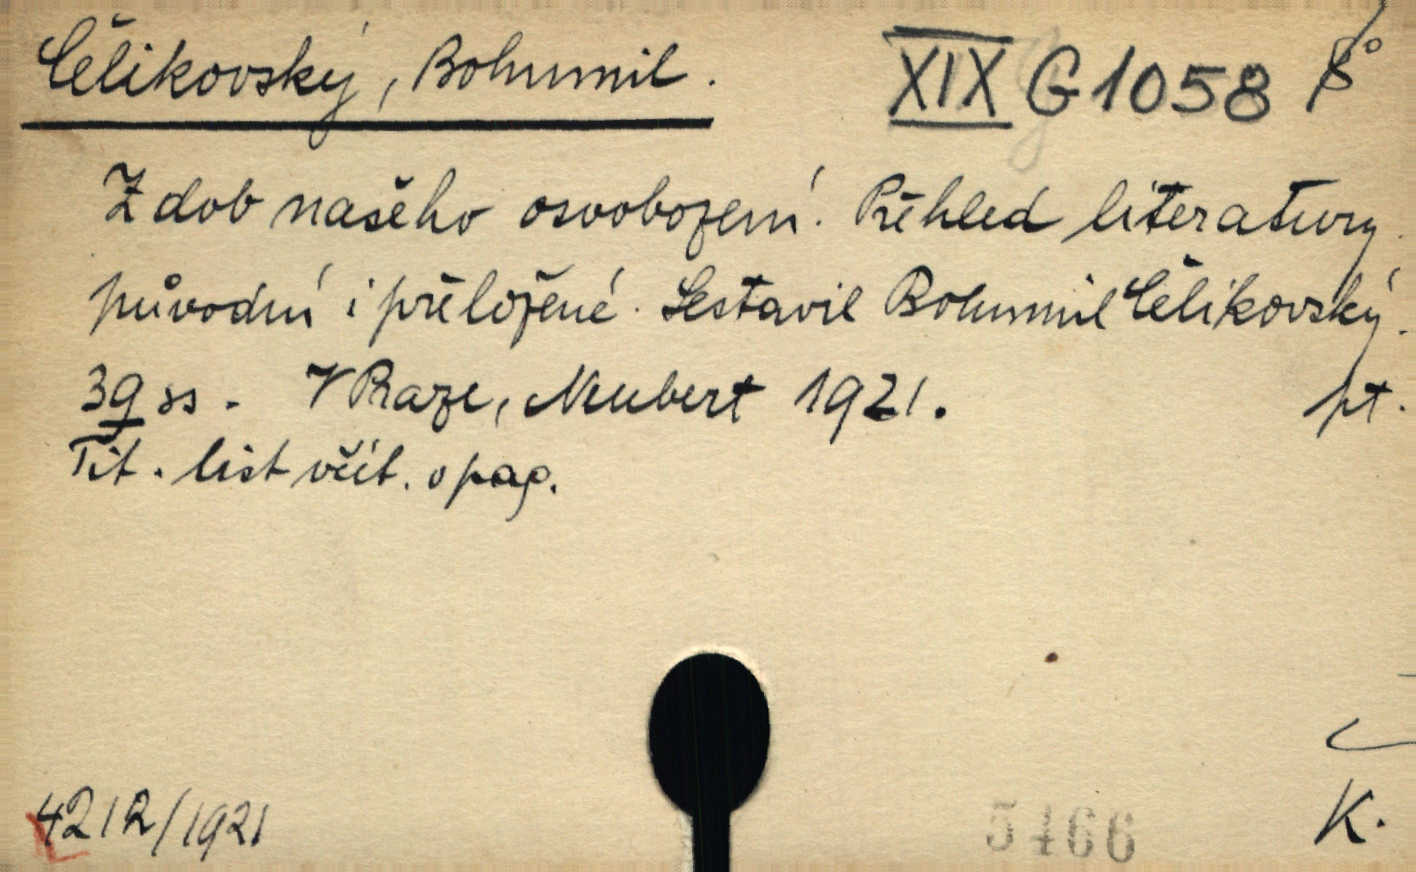 Čelikovský, Bohumil.
XIX G 1058 8°
Z dob našeho osvobození. Přehled literatury
původní i přeložené. Sestavil Bohumil Čelikovský.
39 ss. V Praze, Neubert 1921. pt.
Tit. list včít. o pag.
K.
4212/1921
5466